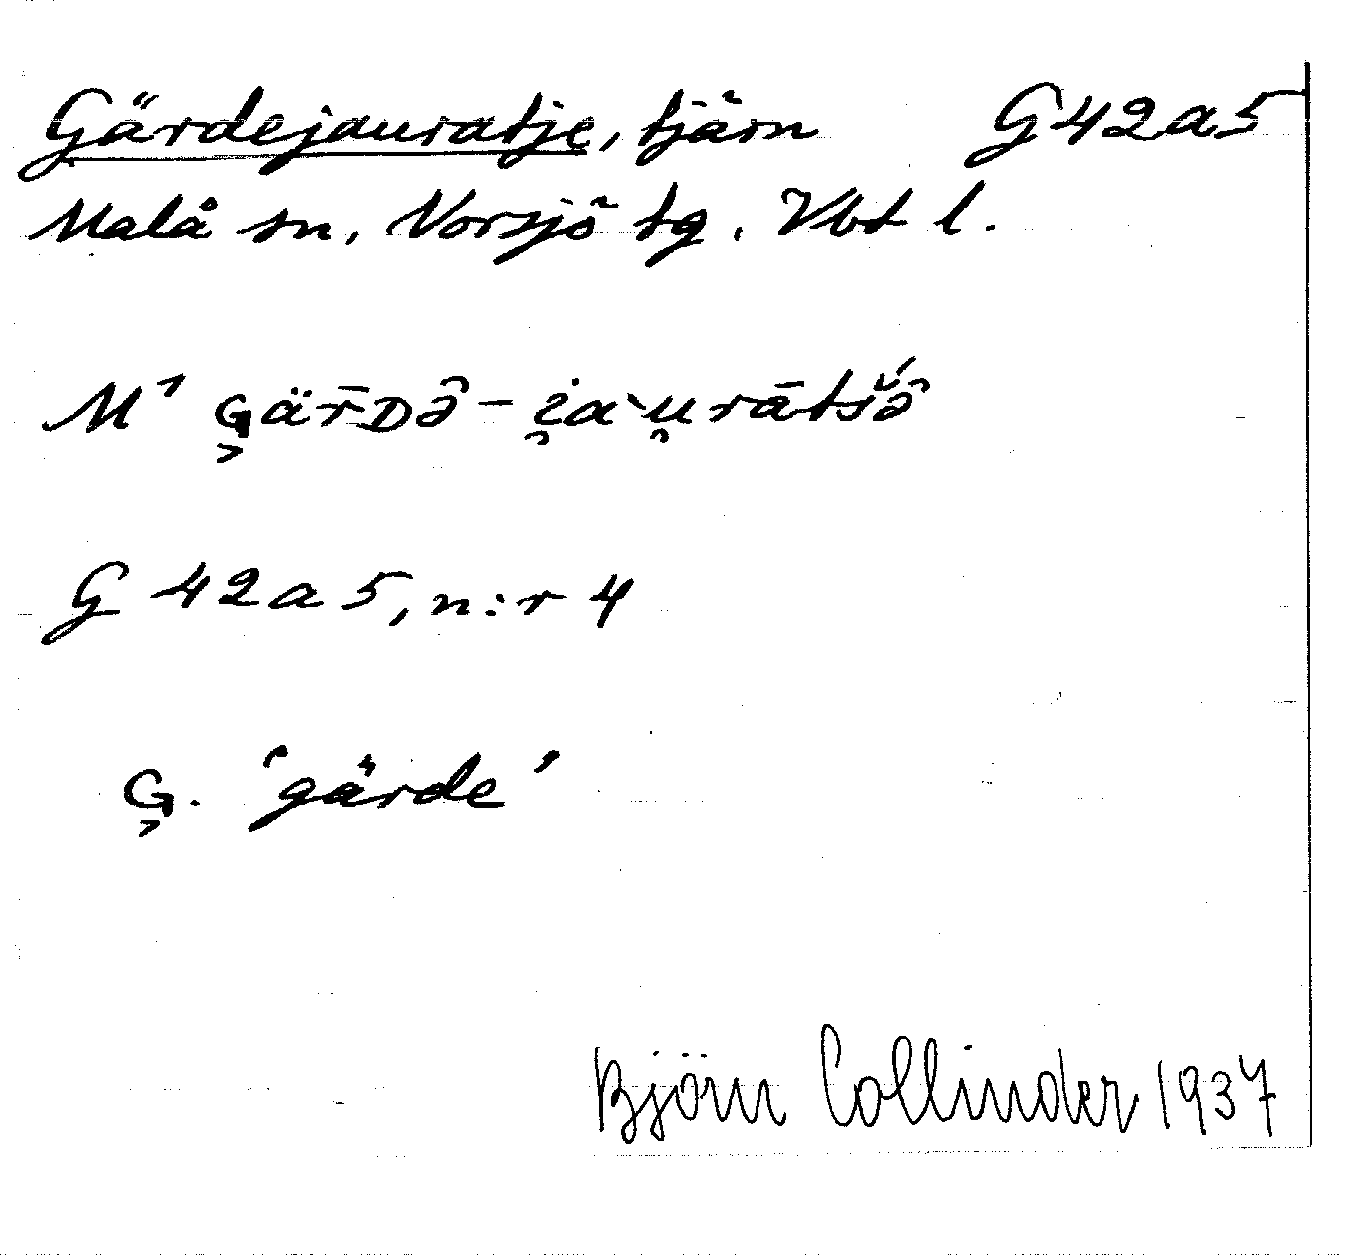 Gärdejauratje, tjärn G42a5
Malå sn, Norsjö tg. Vbt l.
M¹ G̬är̄Də̂ - i̯a`u̯rātšə̂
G 42a5, n:r 4
G̬. 'gärde'
Björn Collinder 1937